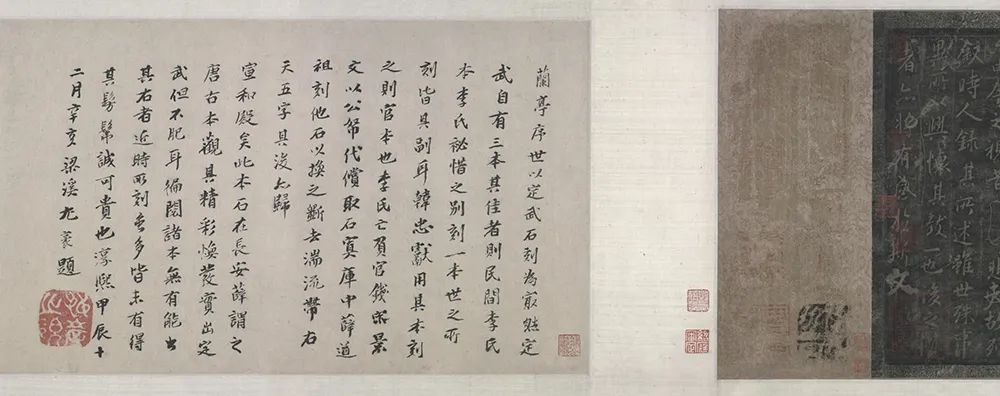 悲夫故列
敘時人錄其所述雖世殊事
異所以興懷其致一也後之
者亦將有感於斯文
蘭亭序世以定武石刻為最然定
武自有三本其佳者則民間李氏
本李氏祕惜之別刻一本世之所
刻皆其副耳韓忠獻用其本刻
之則官本也李氏亡負官錢宋景
文以公帑代償取石寘庫中薛道
祖刻他石以換之斷去湍流帶右
天五字其後亦歸
宣和殿矣此本石在長安薛謂之
唐古本觀其精彩煥發實出定
武但不肥耳徧閱諸本無有能出
其右者近時所刻至多皆未有得
其髣髴誠可貴也淳熙甲辰十
二月辛亥梁溪尤袤題